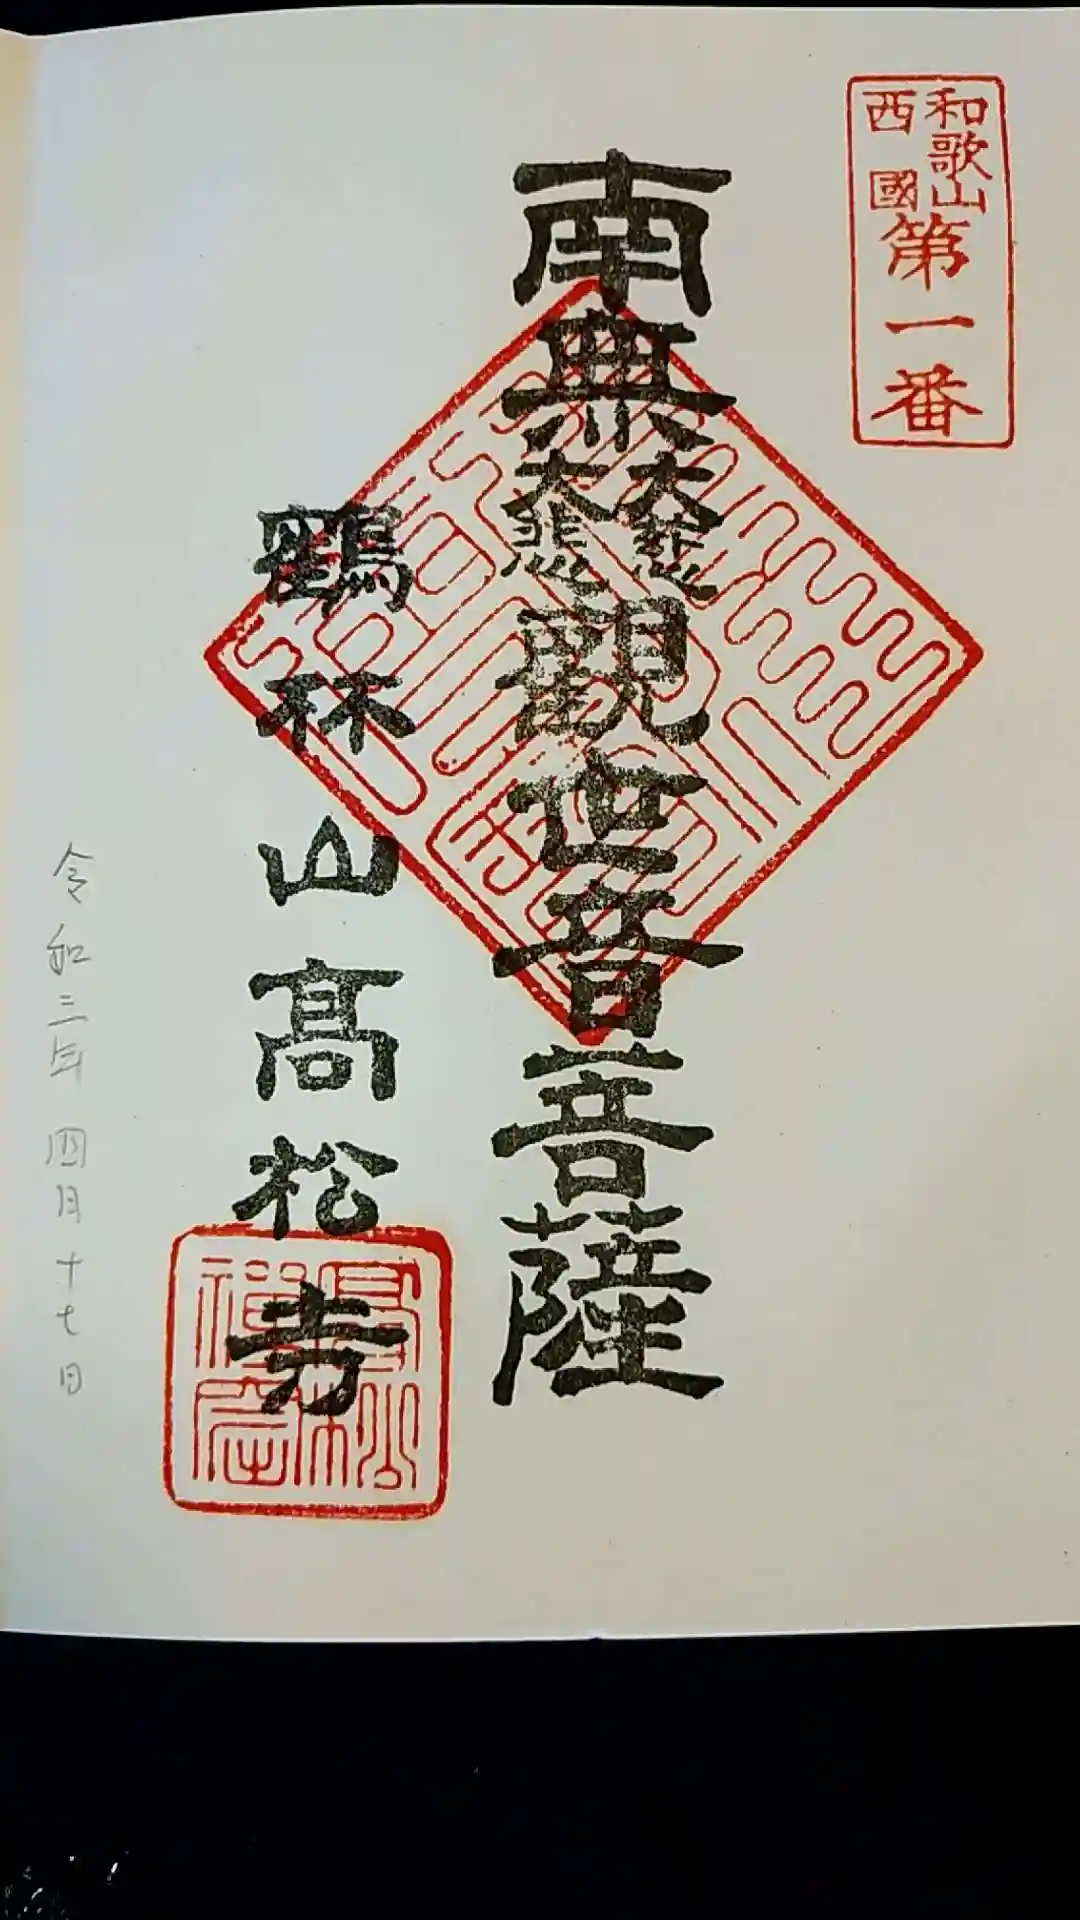 和歌山
西國
第一番
南無
大慈
大悲
觀世音菩薩
鶴林山高松寺
令和三年四月十七日